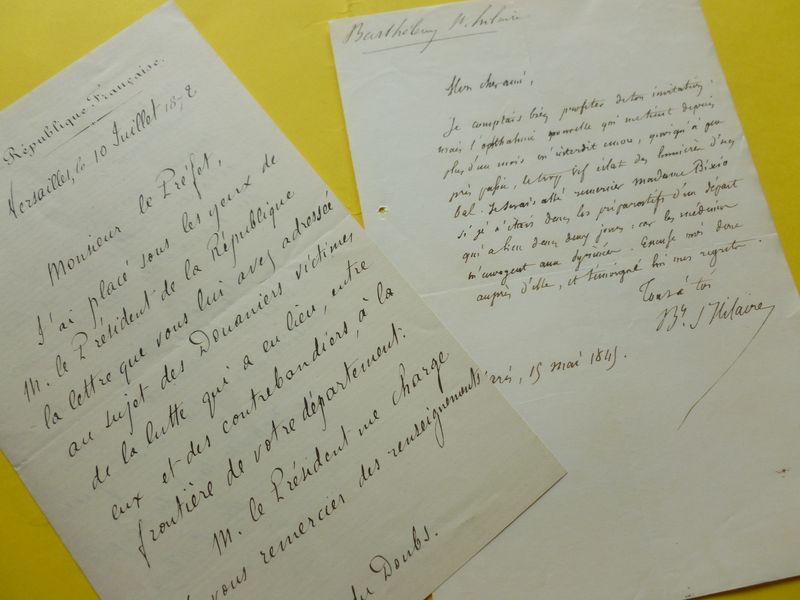 République Française.
Versailles, le 10 Juillet 1872
Monsieur le Préfet,
J'ai placé sous les yeux de
M. le Président de la République
la lettre que vous lui avez adressée
au sujet des Douaniers victimes
de la lutte qui a eu lieu, entre
eux et des contrebandiers, à la
frontière de votre département.
M. le Président me charge
vous remercier des renseignements
du Doubs.
Barthélemy St hilaire
Mon cher ami,
Je comptais bien profiter de ton invitation :
mais l'ophthalmie nouvelle qui me tient depuis
plus d'un mois m'interdit encore, quoiqu'à peu
près passée, le trop vif éclat des lumières d'un
bal. Je serais allé remercier Madame Bixio
si je n'étais dans les préparatifs d'un départ
qui a lieu dans deux jours : car les médecins
m'envoyent aux Pyrénées. Excuse moi donc
auprès d'elle, et témoigne lui mes regrets.
Tout à toi
Bы St Hilaire
Paris, 15 mai 1845.